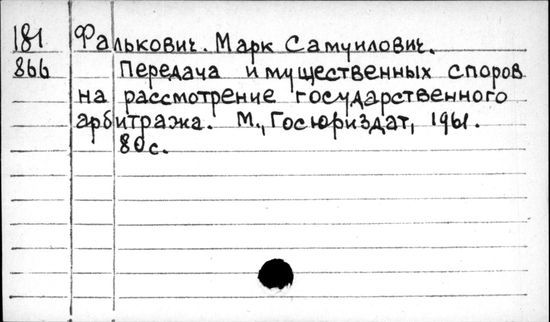 181 Фалькович. Марк Самуилович.
866 Передача имущественных споров
на рассмотрение государственного
арбитража. М., Госюриздат, 1961.
80с.